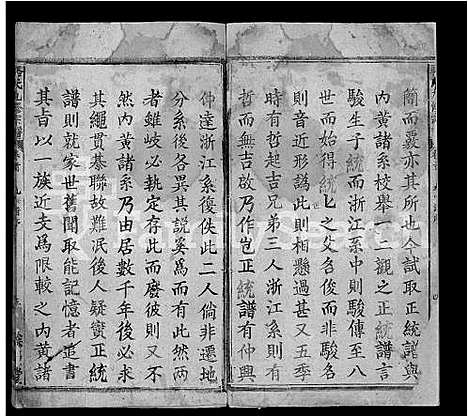 簡而覈亦其所也今試取正統譜與
内黄諸系校舉一二觀之正統譜言
駿生于統而浙江系中則駿傳至八
世而始得統匕之父名俊而非駿也
則音近形譌此則相懸過甚又五季
時有哲起吉兄弟三人浙江系則有
哲而無吉啟乃作豈正統譜有仲興
仲達浙江系復佚此二人倘非遷地
分系後各異其説奚爲而有此然兩
者雖岐必執定存此而廢彼則又不
然内黄諸系乃由居數千年後必求
其繩貫棊聯故難泯後人疑竇正統
譜則就家世舊聞取能記憶者追書
其吉以一族近支爲限較之内黄諸